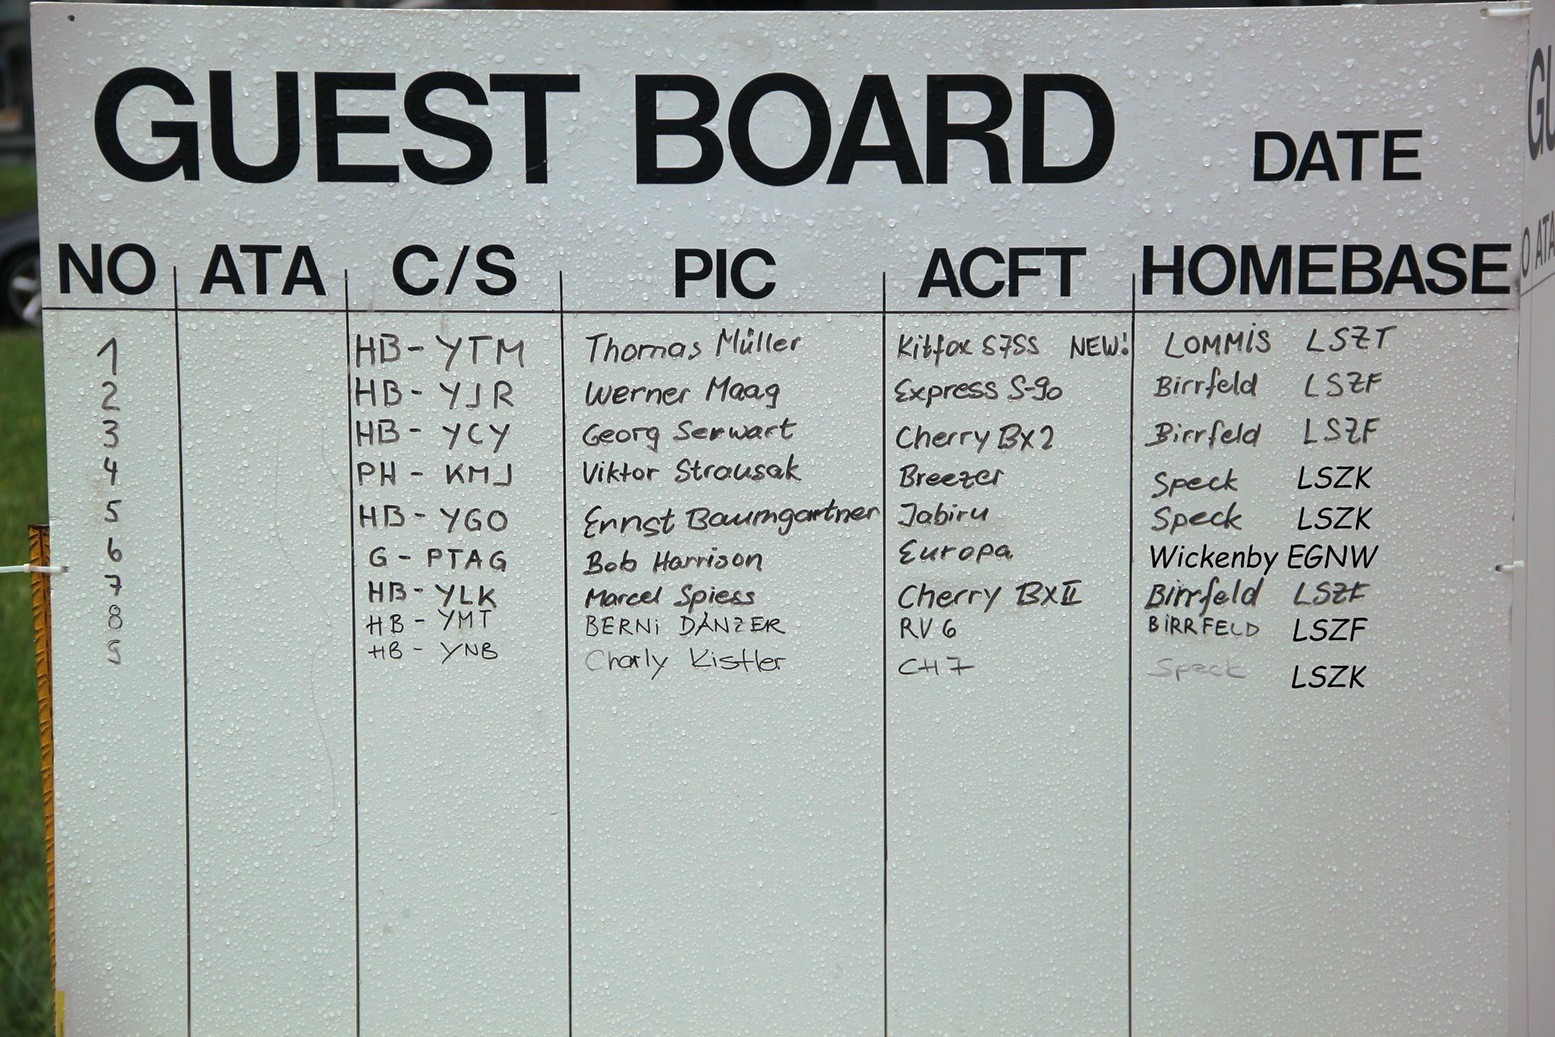 GUEST BOARD DATE
NO ATA C/S PIC ACFT HOMEBASE
1 HB - YTM Thomas Müller Kitfox S7SS NEW! LOMMIS LSZT
2 HB - YJR Werner Maag Express S-90 Birrfeld LSZF
3 HB - YCY Georg Serwart Cherry BX2 Birrfeld LSZF
4 PH - KMJ Viktor Strausak Breezer Speck LSZK
5 HB - YGO Ernst Baumgartner Jabiru Speck LSZK
6 G - PTAG Bob Harrison Europa Wickenby EGNW
7 HB - YLK Marcel Spiess Cherry BXII Birrfeld LSZF
8 HB - YMT BERNi DÄNZER RV6 BIRRFELD LSZF
9 HB - YNB Charly Kistler CH7 Speck LSZK
GU
O ATA